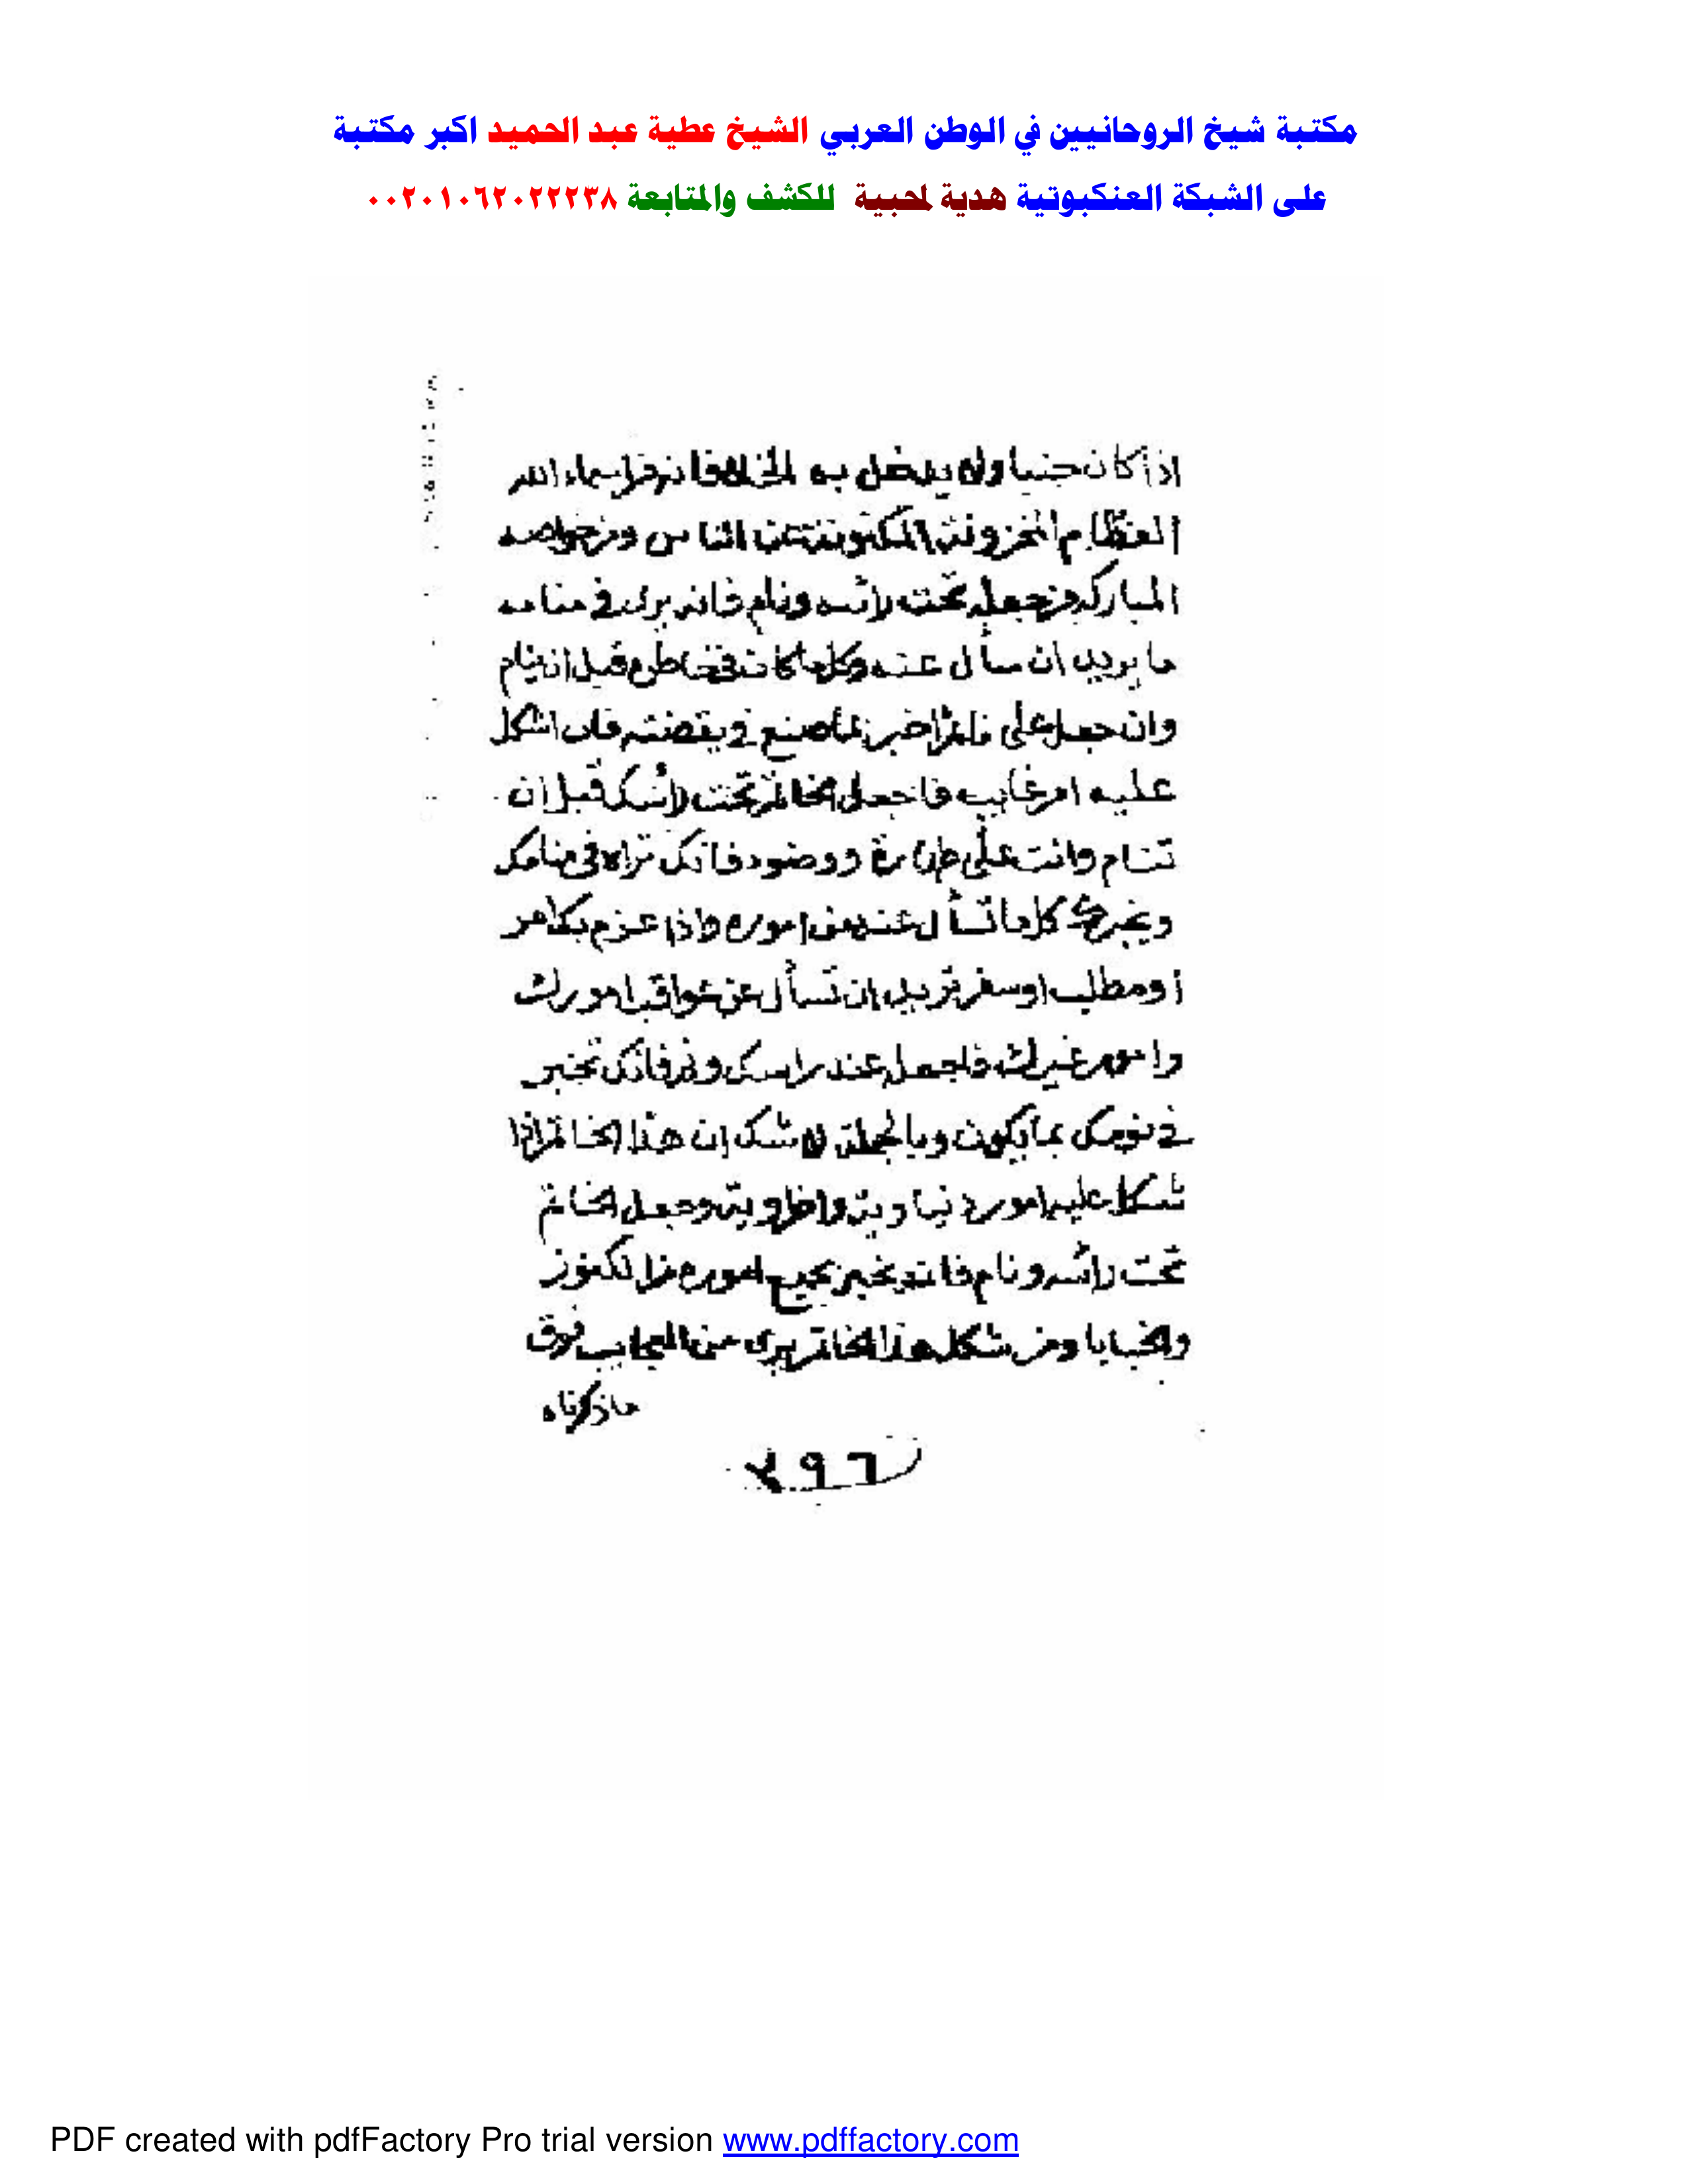 مكتبة شيخ الروحانيين في الوطن العربي الشيخ عطية عبد الحميد اكبر مكتبة
على الشبكة العنكبوتية هدية لمحبية للكشف والمتابعة ٠٠٢٠١٠٦٢٠٢٢٢٣٨
اذا كان جنبا ولا يدخل به الخلا فانه من اسماء الله
العظام المخزونة المكنونة عن الناس ومن خواصه
المباركه من جعله تحت رأسه ونام فانه يرى في منامه
ما يريد ان سأل عنه وكلما كان في خاطره قبل ان ينام
وان جعل على نائم اخبر بما صنع في يقضته فان اشكل
عليه امر غايب فاجعل الخاتم تحت رأسك قبل ان
تنام وانت على طهارة ووضوء فانك تراه في منامك
ويخبرك كلما تسأل عنه من اموره واذا عزم بك امر
أو مطلب او سفر تريد ان تسأل عن عواقب امورك
وامور غيرك فاجعل عند راسك ونم فانك تخبر
في نومك بما يكون وبالجملة لا شك ان هذا الخاتم اذا
شكل عليه امور دنياويه واخراويه وجعل الخاتم
تحت رأسه ونام فانه يخبر بجميع اموره من الكنوز
والخبايا ومن شكله هذا الخاتم يرى من العجايب فوق
ماذكرناه
٢٩٦
PDF created with pdfFactory Pro trial version www.pdffactory.com